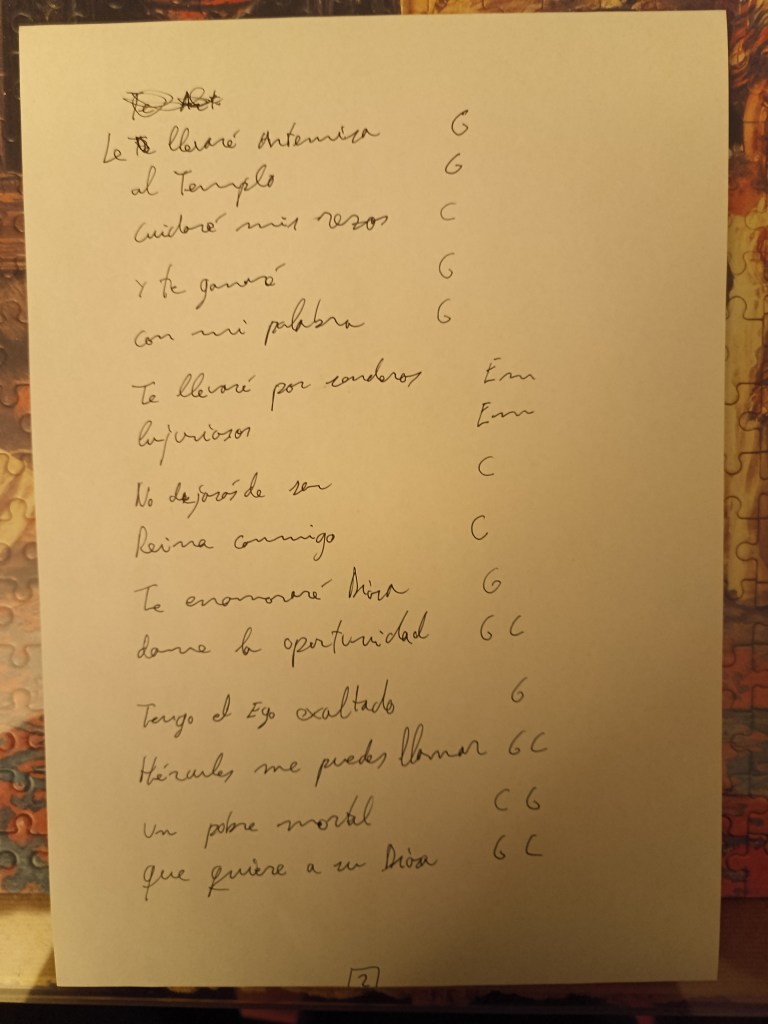 Le llevaré Artemisa G
al Templo G
Cuidaré mis rezos C
Y te ganaré G
con mi palabra G
Te llevaré por senderos Em
lujuriosos Em
No dejarás de ser C
Reina conmigo C
Te enamoraré Diosa G
dame la oportunidad G C
Tengo el Ego exaltado G
Hércules me puedes llamar G C
un pobre mortal C G
que quiere a su Diosa G C
2